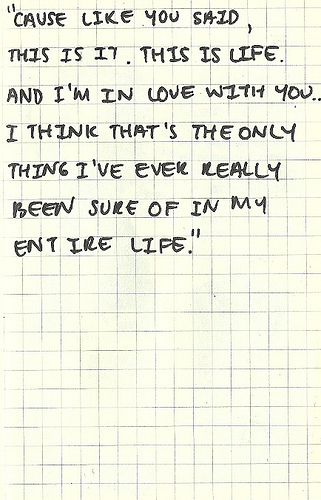 "'CAUSE LIKE YOU SAID,
THIS IS IT. THIS IS LIFE.
AND I'M IN LOVE WITH YOU..
I THINK THAT'S THE ONLY
THING I'VE EVER REALLY
BEEN SURE OF IN MY
ENTIRE LIFE."